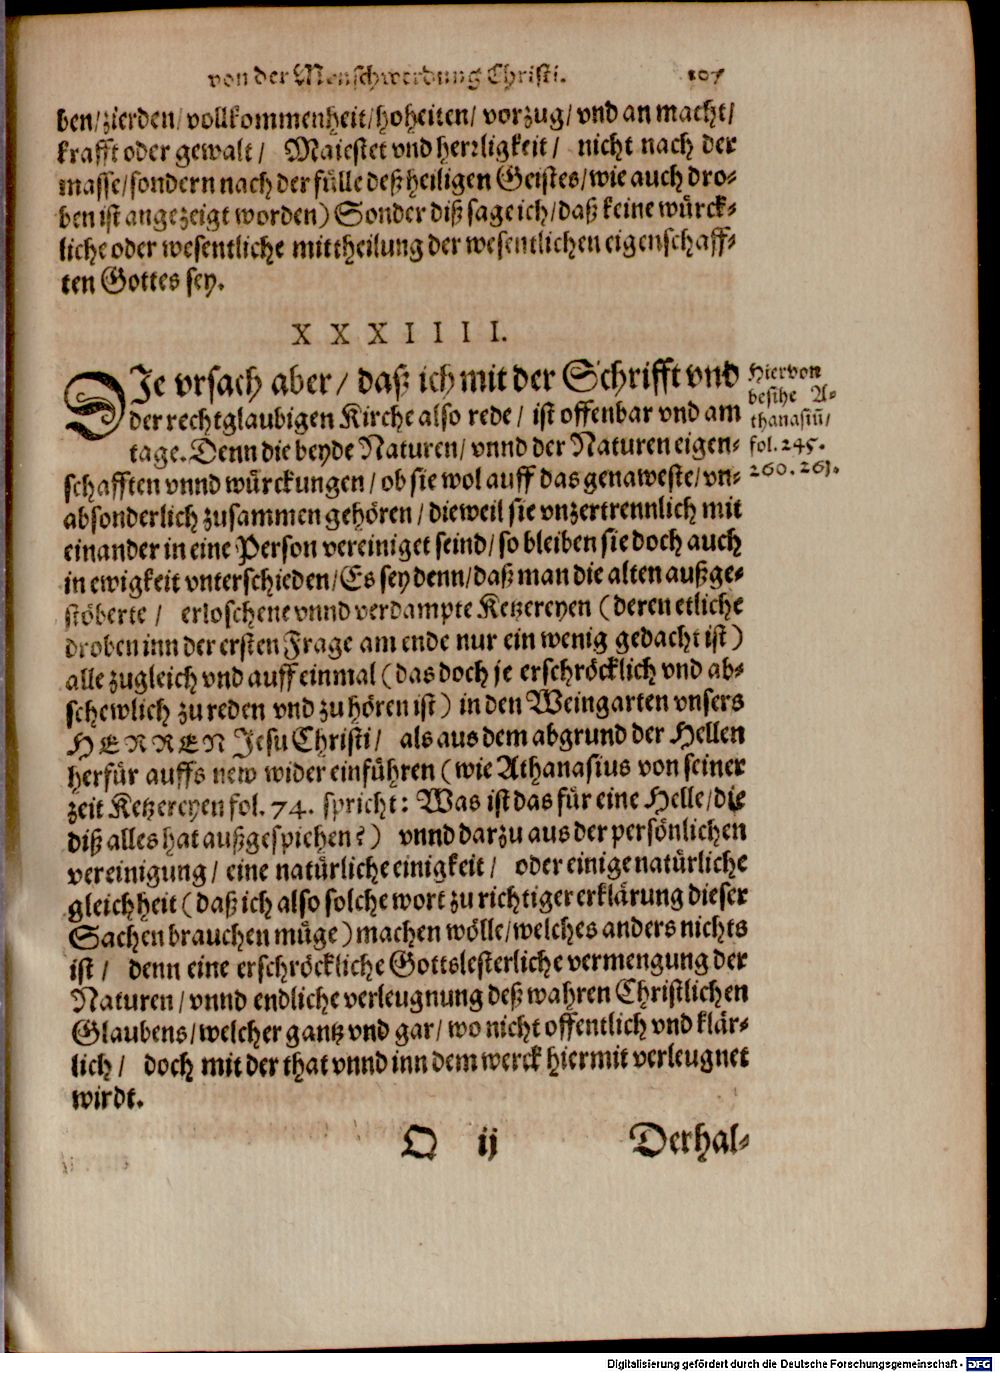 von der Menschwerdung Christi. 107
ben/zierden/vollkommenheit/hoheiten/vorzug/vnd an macht/
krafft oder gewalt/ Maiestet vnd herrligkeit/ nicht nach der
masse/sondern nach der fülle deß heiligen Geistes/wie auch dro-
ben ist angezeigt worden) Sonder diß sage ich/daß keine würck-
liche oder wesentliche mittheilung der wesentlichen eigenschaff-
ten Gottes sey.
XXXIIII.
DIe vrsach aber/ daß ich mit der Schrifft vnd
der rechtglaubigen Kirche also rede/ ist offenbar vnd am
tage. Denn die beyde Naturen/ vnnd der Naturen eigen-
schafften vnnd würckungen/ ob sie wol auff das genaweste/vn-
absonderlich zusammen gehören/ dieweil sie vnzertrennlich mit
einander in eine Person vereiniget seind/ so bleiben sie doch auch
in ewigkeit vnterschieden/Es sey denn/daß man die alten außge-
stöberte/ erloschene vnnd verdampte Ketzereyen (deren etliche
droben inn der ersten Frage am ende nur ein wenig gedacht ist)
alle zugleich vnd auff einmal (das doch je erschröcklich vnd ab-
schewlich zu reden vnd zu hören ist) in den Weingarten vnsers
HERREN Jesu Christi/ als aus dem abgrund der Hellen
herfür auffs new wider einführen (wie Athanasius von seiner
zeit Ketzereyen fol. 74. spricht: Was ist das für eine Helle/die
diß alles hat außgespiehen?) vnnd darzu aus der persönlichen
vereinigung/ eine natürliche einigkeit/ oder einige natürliche
gleichheit (daß ich also solche wort zu richtiger erklärung dieser
Sachen brauchen müge) machen wölle/welches anders nichts
ist/ denn eine erschröckliche Gottslesterliche vermengung der
Naturen/ vnnd endliche verleugnung deß wahren Christlichen
Glaubens/welcher gantz vnd gar/ wo nicht offentlich vnd klär-
lich/ doch mit der that vnnd inn dem werck hiermit verleugnet
wirdt.
Hiervon
besihe A-
thanasiũ/
fol. 245.
260. 261.
Q ij Derhal-
Digitalisierung gefördert durch die Deutsche Forschungsgemeinschaft - DFG